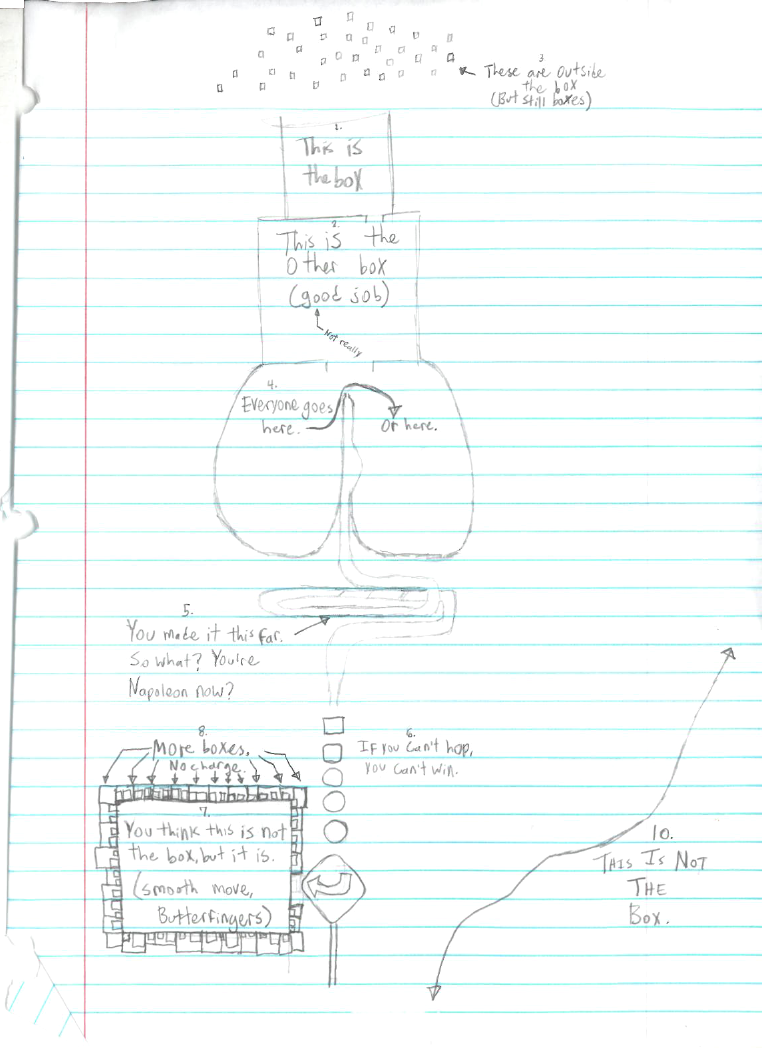 3
These are outside
the box
(But still boxes)
1.
This is
the box
2.
This is the
Other box
(good job)
Not really
4.
Everyone goes
here.
Or here.
5.
You made it this far.
So what? You're
Napoleon now?
6.
If you can't hop,
You can't win.
8.
More boxes,
No charge.
7.
You think this is not
the box, but it is.
(smooth move,
Butterfingers)
10.
This Is Not
The
Box.